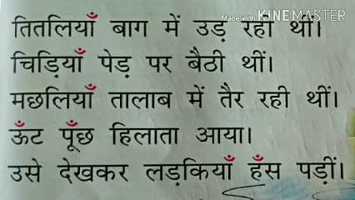 Made with KINEMASTER
तितलियाँ बाग में उड़ रही थीं।
चिड़ियाँ पेड़ पर बैठी थीं।
मछलियाँ तालाब में तैर रही थीं।
ऊँट पूँछ हिलाता आया।
उसे देखकर लड़कियाँ हँस पड़ीं।